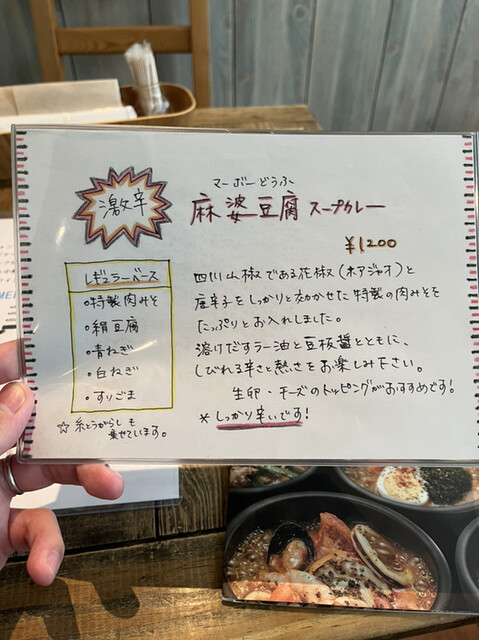 激辛
マーボーどうふ
麻婆豆腐 スープカレー
¥1200
レギュラーベース
・特製肉みそ
・絹豆腐
・青ねぎ
・白ねぎ
・すりごま
☆ 糸とうがらしも
乗せています。
四川山椒である花椒(ホアジャオ)と
唐辛子をしっかりと効かせた特製の肉みそを
たっぷりとお入れしました。
溶けだすラー油と豆板醤とともに、
しびれる辛さと熱さをお楽しみ下さい。
生卵・チーズのトッピングがおすすめです!
* しっかり辛いです!